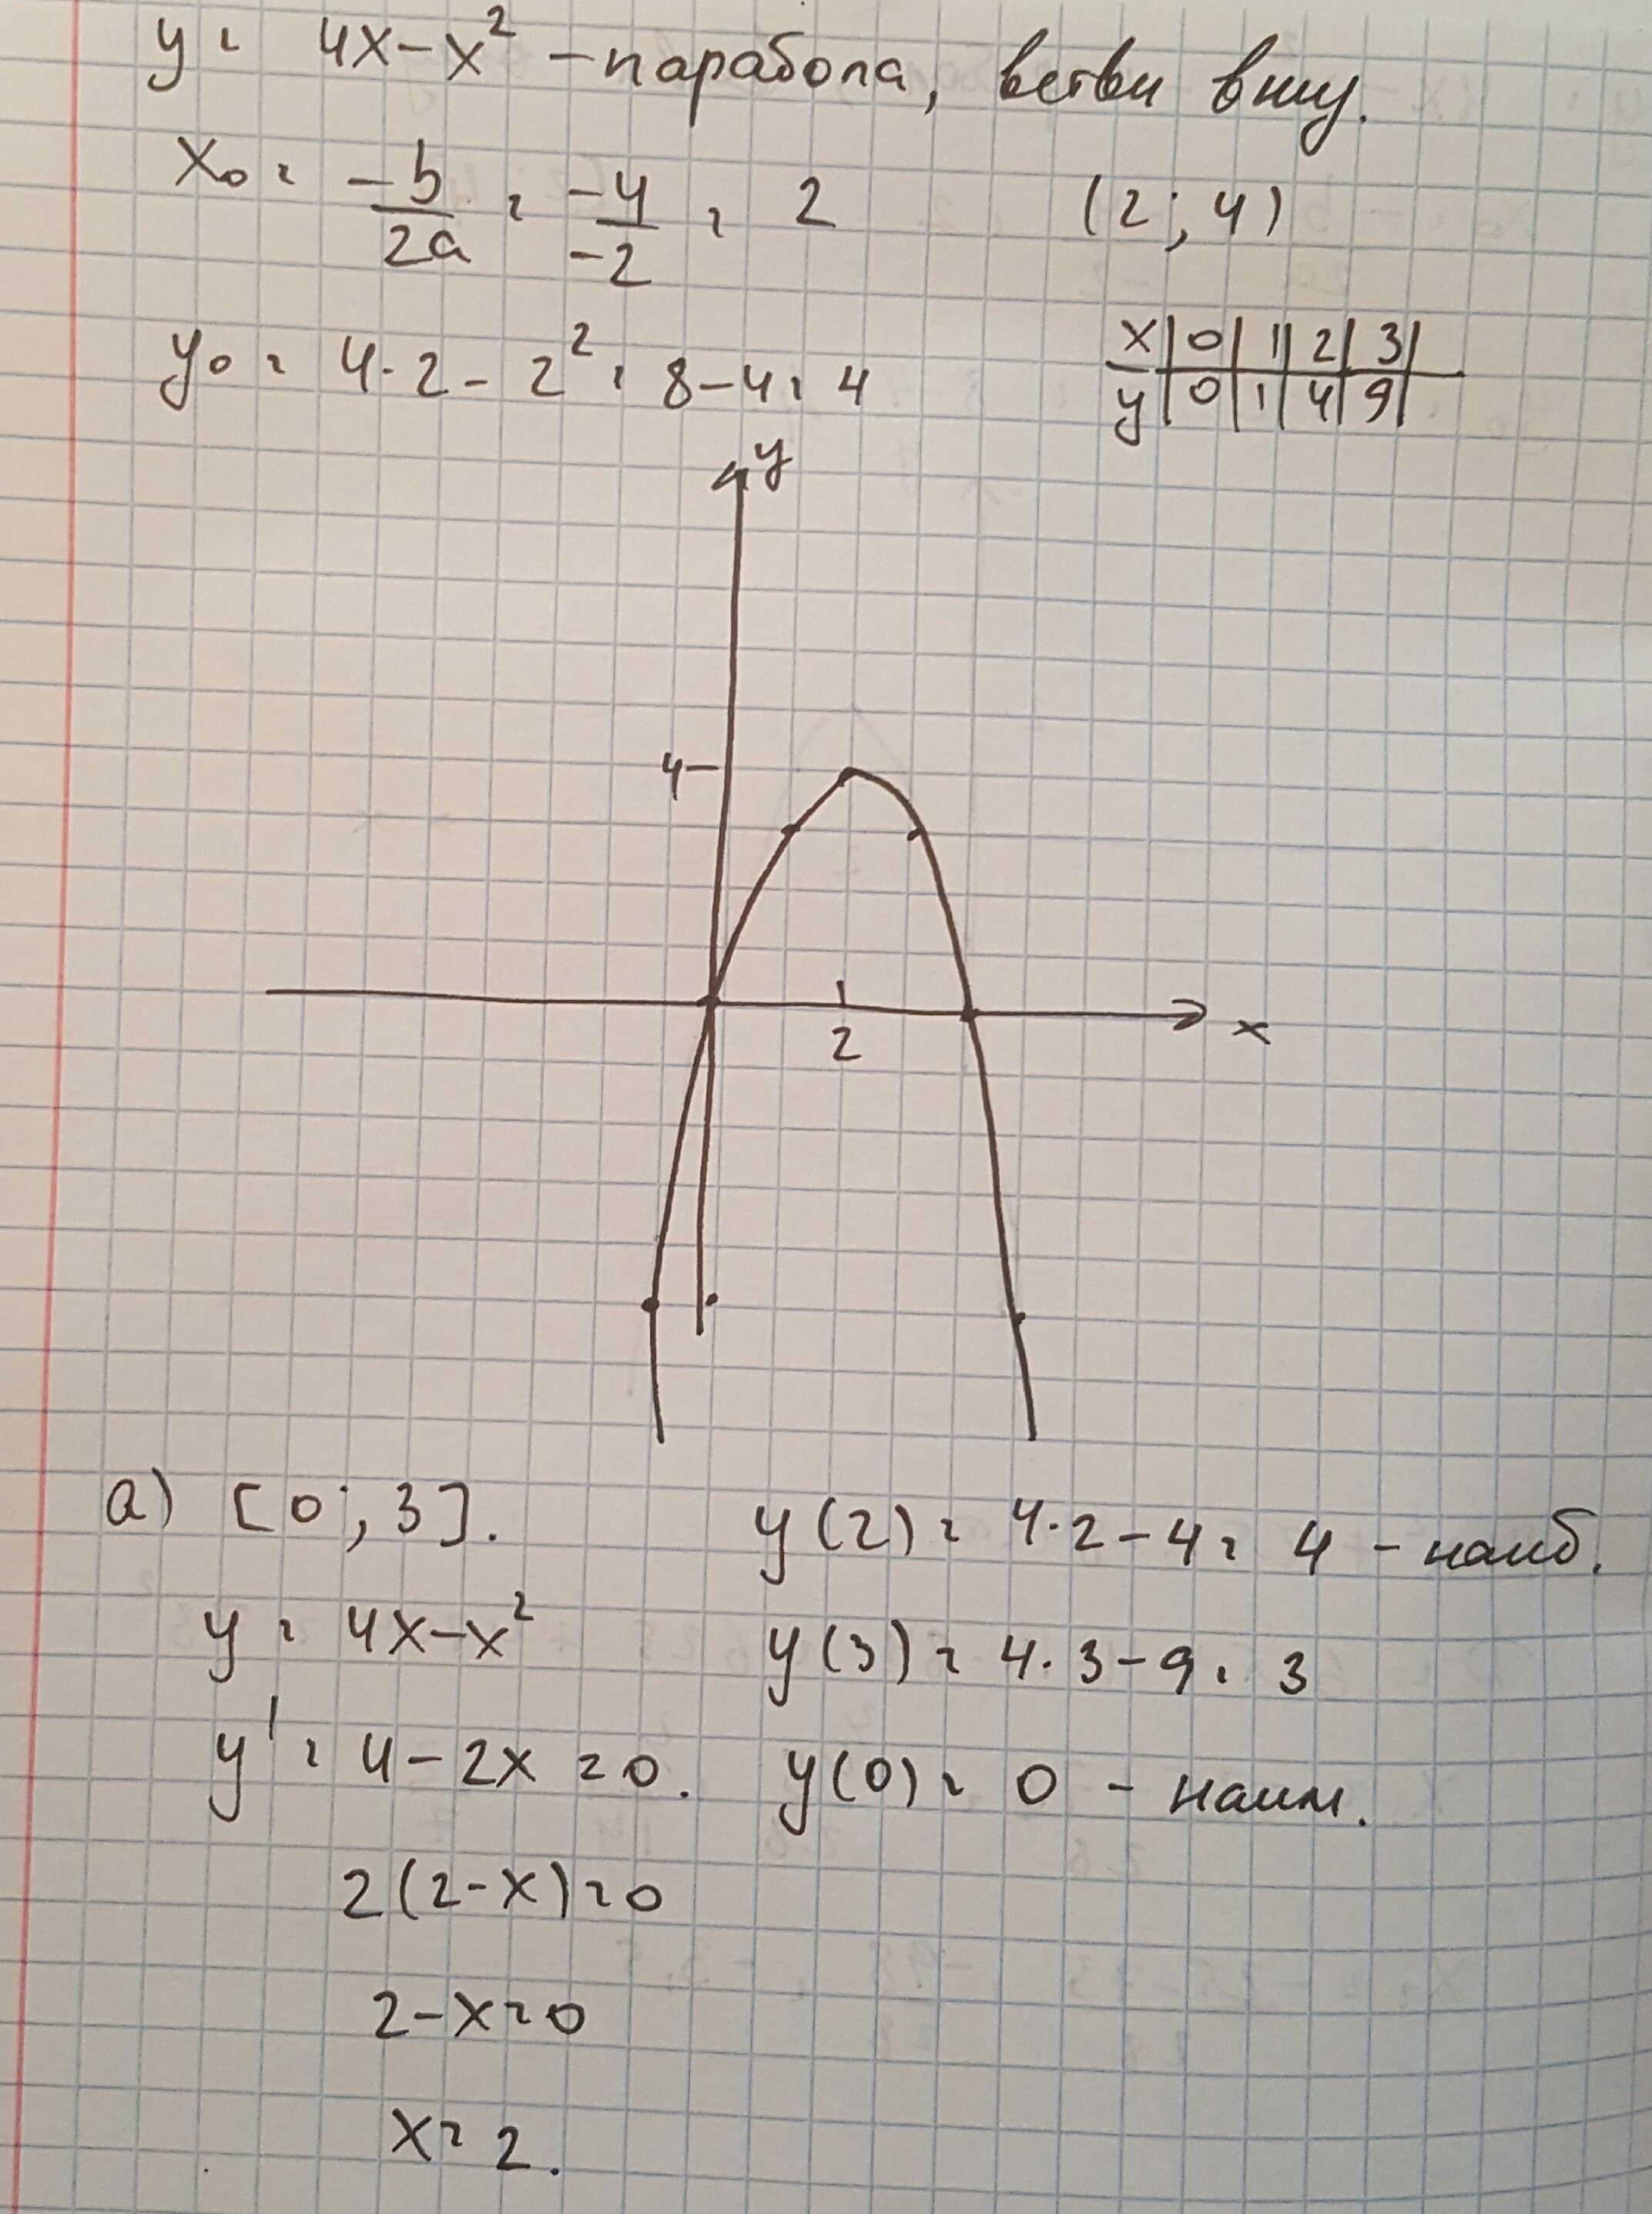 y = 4x - x² - парабола, ветви вниз.
x₀ = -b/2a = -4/-2 = 2 (2; 4)
y₀ = 4·2 - 2² = 8 - 4 = 4
x | 0 | 1 | 2 | 3 |
y | 0 | 1 | 4 | 9 |
y
4
2
x
а) [0; 3].
y = 4x - x²
y' = 4 - 2x = 0.
2(2-x) = 0
2 - x = 0
x = 2.
y(2) = 4·2 - 4 = 4 - наиб.
y(3) = 4·3 - 9 = 3
y(0) = 0 - наим.